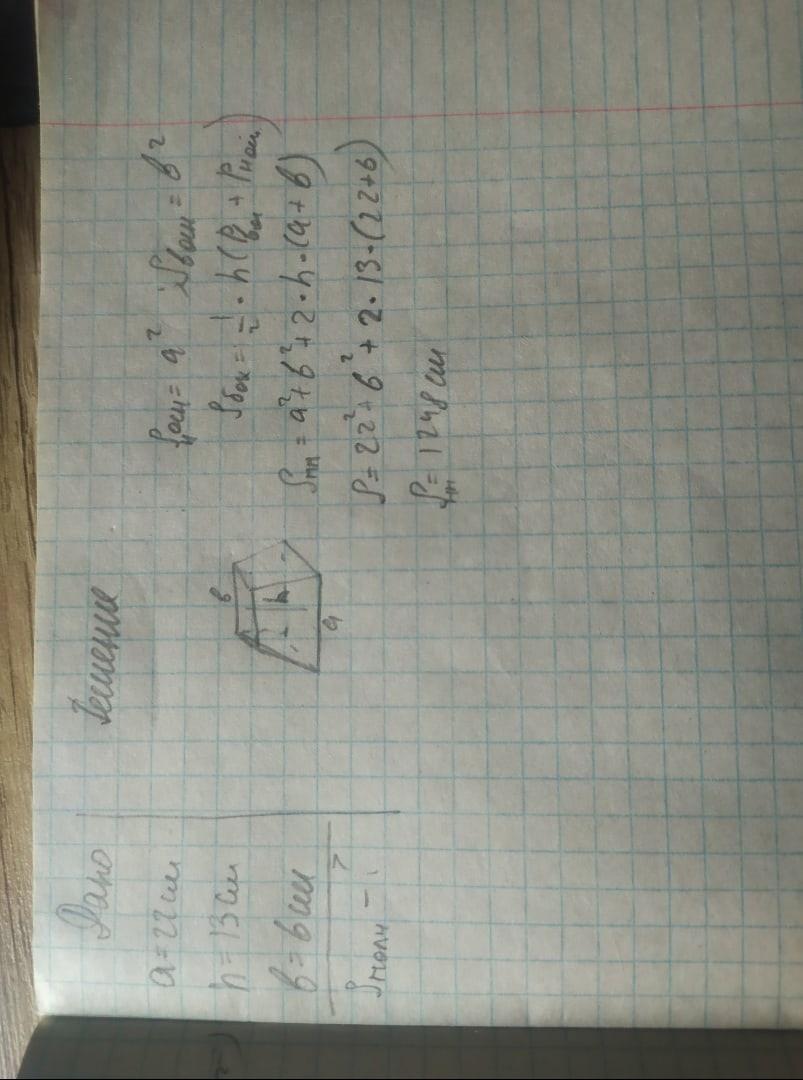 Дано
a = 22 см
h = 13 см
в = 6 см
Sполн - ?
Решение
в
h
a
Sносн = a² Sвосн = в²
Sбок = 1/2 · h (Pвосн + Pносн)
Sпп = a² + в² + 2 · h · (a + в)
S = 22² + 6² + 2 · 13 · (22 + 6)
Sпп = 1248 см